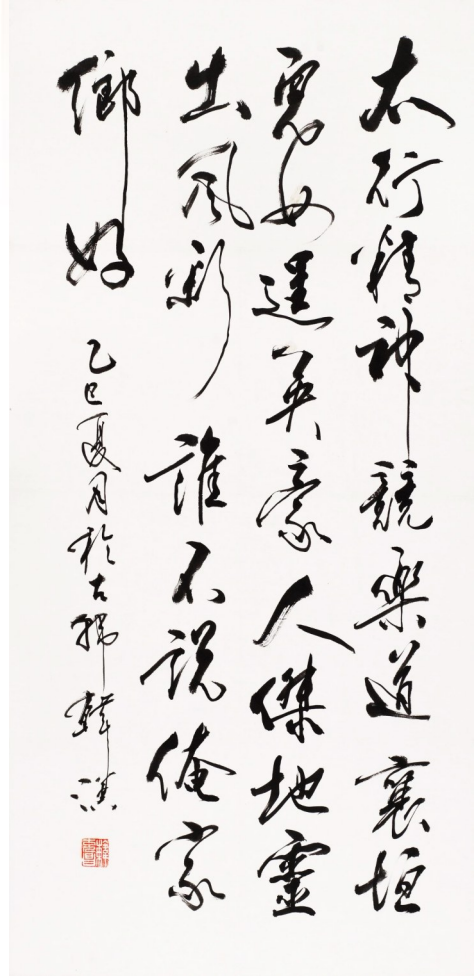 太行精神競樂道襄垣
兒女逞英豪人傑地靈
出風彩誰不說俺家
鄉好
乙巳夏月於古韓韓